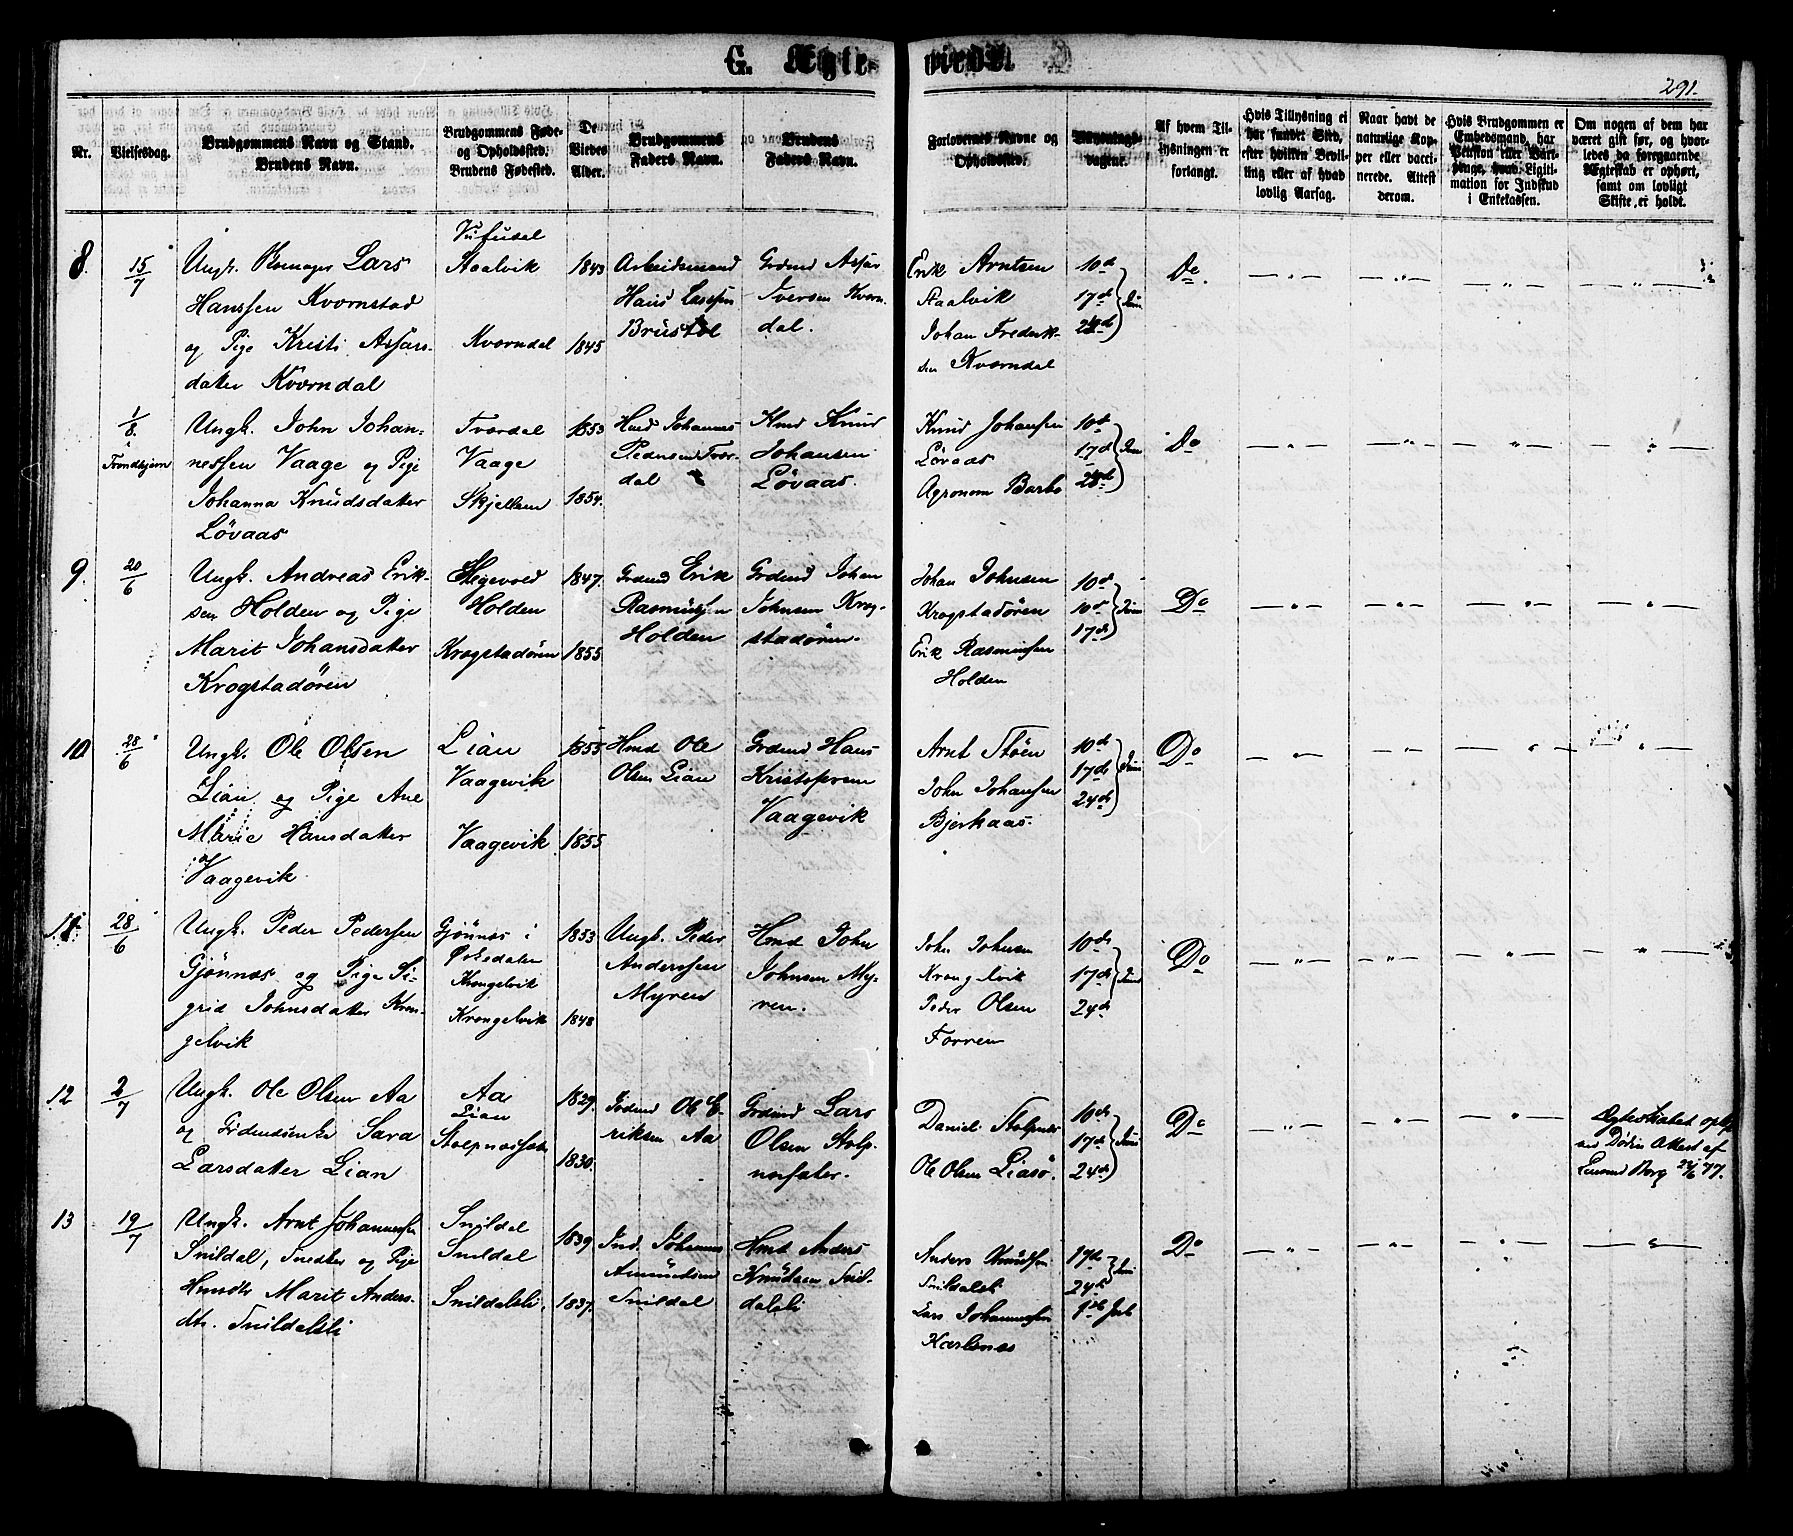 G. Ægteviede.
291.
Nr.
Vielsesdag.
Brudgommens Navn og Stand.
Brudens Navn.
Brudgommens Føde-
og Opholdssted.
Brudens Fødested.
De
Viedes
Alder.
Brudgommens
Faders Navn.
Brudens
Faders Navn.
Forlovernes Navne og
Opholdssted.
Lysnings-
dagene.
Af hvem Til-
lysningen er
forlangt.
Hvis Tillysning ei
har fundet Sted,
efter hvilken Bevil-
ling eller af hvad
lovlig Aarsag.
Naar havt de
naturlige Kop-
per eller vacci-
nerede. Attest
derom.
Hvis Brudgommen er
Embedsmand, har
Pension eller Vart-
penge, hvad Ligiti-
mation for Indskud
i Enkekassen.
Om nogen af dem har
været gift før, og hvor-
ledes da foregaaende
Ægteskab er ophørt,
samt om lovligt
Skifte, er holdt.
8.
15/7
Ungk. Lars
Hanssen Kvornstad
og Pige Kristi Assars-
datter Kværndal
Staalvik
Kværndal
1843
1845
Arbeidsmand
Hans Larssen
Brustøl
Grdmd Assar
Iversen Kværn-
dal.
Erik Arntsen
Staalvik
Johan Frederik-
sen Kværndal
10de
17de
24de
Juni
Do.
1/8
i
Trondhjem
Ungk. John Johan-
nessen Vaage og Pige
Johanna Knudsdatter
Løvaas
Tværdal
Vaage
Skjellem
1853
1854.
Hmd Johannes
Pedersen Tvær-
dal
Hmd Knud
Johansen
Løvaas.
Knud Johansen
Løvaas
Agronom Barbo
10de
17de
Juni
Do
9.
20/6
Ungk. Andreas Erik-
sen Holden og Pige
Marit Johansdatter
Krogstadøren
Hegevold
Holden
Krogstadøren
1847.
1855
Grdmd Erik
Rasmussen
Holden
Grdmd Johan
Johnsen Krog-
stadøren.
Johan Johnsen
Krogstadören
Erik Rasmussen
Holden
10de
10de
17de
Juni
Do
10.
28/6
Ungk. Ole Olsen
Lian og Pige Ane
Marie Hansdatter
Vaagevik
Lian
Vaagevik
Vaagevik
1855
1855
Hmd Ole
Olsen Lian
Grdmd Hans
Kristofersen
Vaagevik
Arnt Støen
John Johansen
Bjerkaas.
10de
17de
24de
Juni
Do
11.
28/6
Ungk. Peder Pedersen
Gjønnæs og Pige Si-
grid Johnsdatter Kron-
gelvik
Gjønnæs i
Krongelvik
Krongelvik
1853
1848
Ungk. Peder
Anderssen
Myren
Hmd John
Johnsen My-
ren.
John Johnsen
Krongelvik
Peder Olsen
Forren
10de
17de
24de
Juni
Do
12
2/7
Ungk. Ole Olsen Aa
og Grdmdsenke Sara
Larsdatter Lian
Aa
Lian
Stolpnæssæter
1829.
1830.
Grdmd Ole E-
riksen Aa
Grdmd Lars
Olsen Stolp-
næsæter.
Daniel Stolpnæs
Ole Olsen Liasø.
10de
17de
24de
Juni
Do
Ægteskabet opløst
ved Døden Attest af
Lensmd Borg 24/6 77.
13
19/7
Ungk. Arnt Johannessen
Snildal, Snedker og Pige
Husdtr Marit Anders-
dtr. Snildalsli
Snildal
Snildal
Snildalsli.
1839
1837.
Ind. Johannes
Amundsen
Snildal
Hmd Anders
Knudsen Snil-
dalsli
Anders Knudsen
Snildalsli
Lars Johannessen
Karlsnæs
17de
24de
Juni
1ste Juli
Do